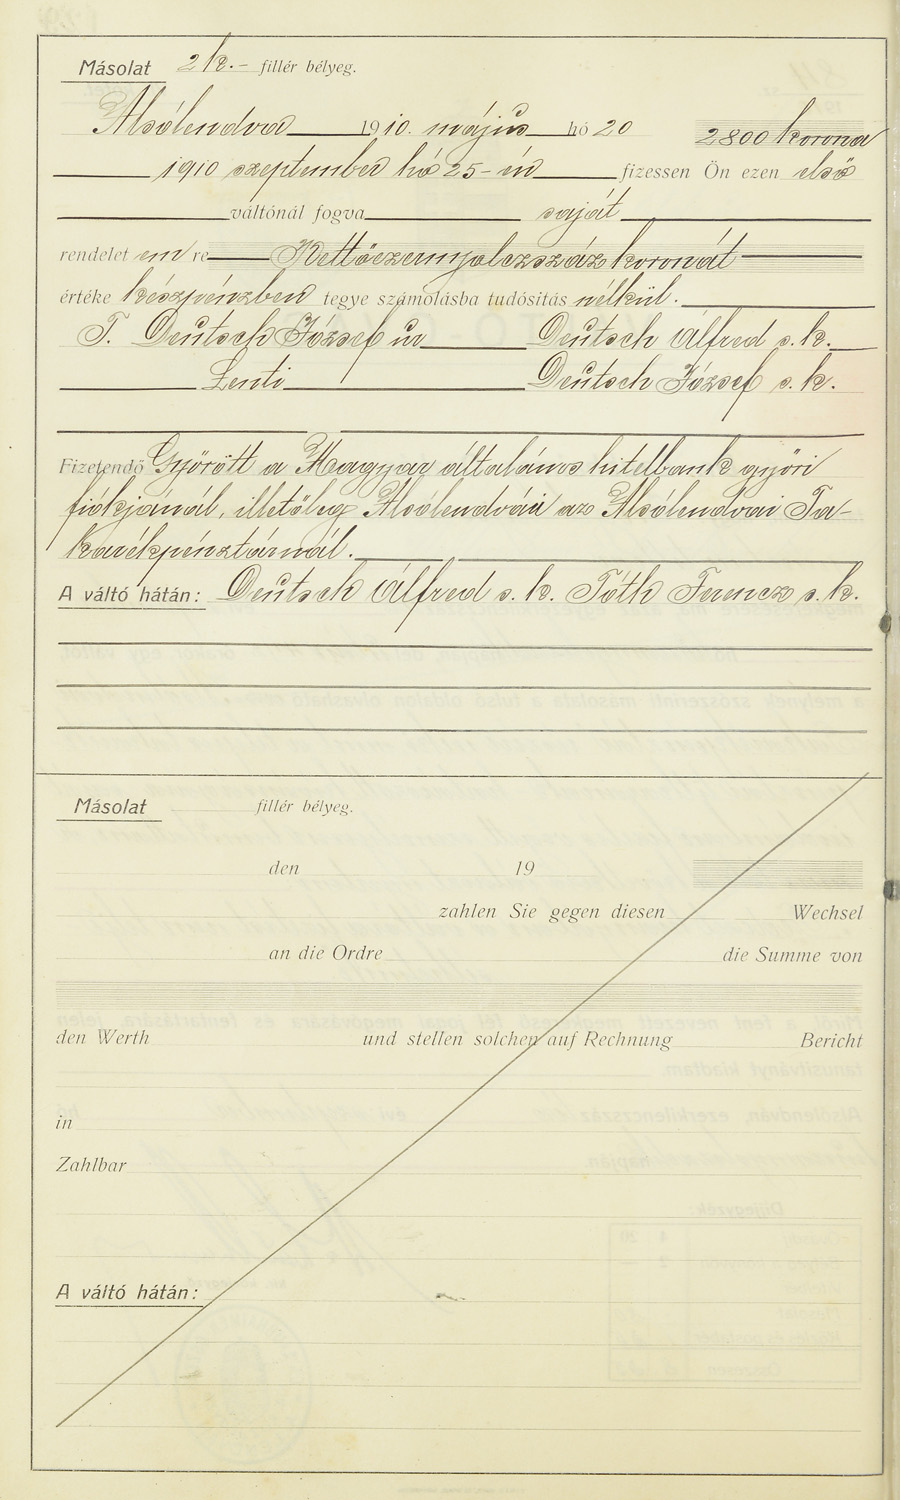 Másolat 2 k.- fillér bélyeg.
Alsólendva 1910. május hó 20 2800 korona
1910 szeptember hó 25-én fizessen Ön ezen első
váltónál fogva saját
rendelet em re Kettőezernyolczszáz koronát
értéke készpénzben tegye számolásba tudósitás nélkül.
T. Deutsch József úr Deutsch Alfred s. k.
Lenti Deutsch József s. k.
Fizetendő Győrött a Magyar általános hitelbank győri
fiókjánál, illetőleg Alsólendván az Alsólendvai Ta-
karékpénztárnál.
A váltó hátán: Deutsch Alfred s. k. Tóth Ferencz s. k.
Másolat fillér bélyeg.
den 19
zahlen Sie gegen diesen Wechsel
an die Ordre die Summe von
den Werth und stellen solchen auf Rechnung Bericht
in
Zahlbar
A váltó hátán: